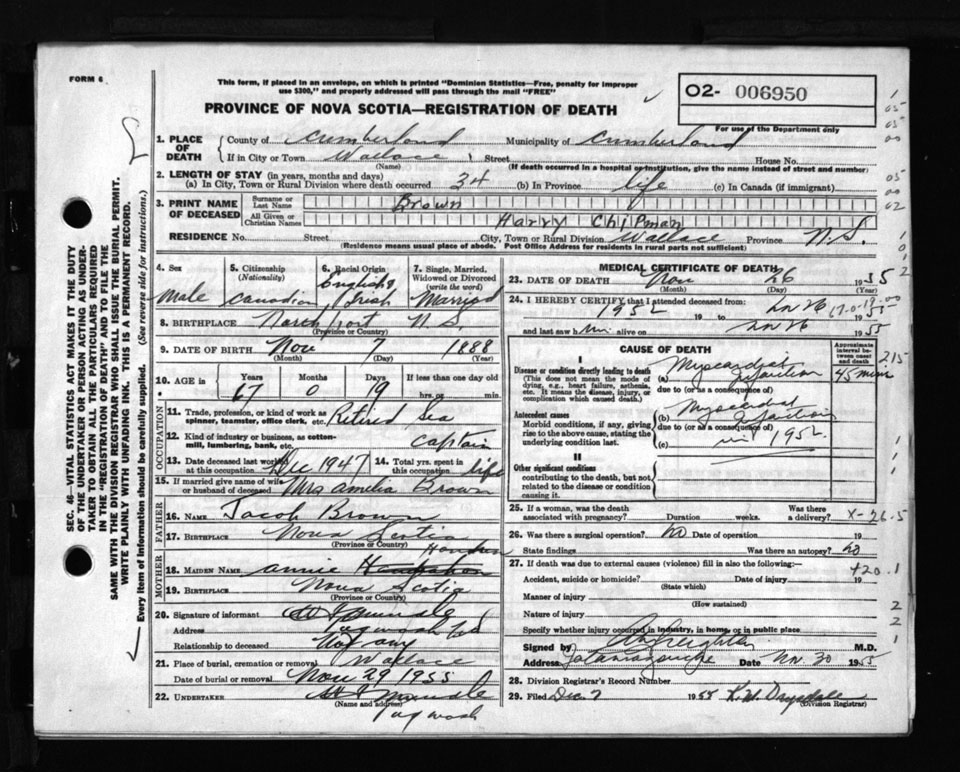 FORM 6
This form, if placed in an envelope, on which is printed "Dominion Statistics—Free, penalty for improper
use $300," and properly addressed will pass through the mail "FREE"
PROVINCE OF NOVA SCOTIA—REGISTRATION OF DEATH
O2- 006950
For use of the Department only
1. PLACE OF DEATH
County of Cumberland Municipality of Cumberland
If in City or Town Wallace Street House No.
(Name) (If death occurred in a hospital or institution, give the name instead of street and number)
2. LENGTH OF STAY (in years, months and days)
(a) In City, Town or Rural Division where death occurred 34 (b) In Province life (c) In Canada (if immigrant)
3. PRINT NAME OF DECEASED
Surname or Last Name Brown
All Given or Christian Names Harry Chipman
RESIDENCE No. Street City, Town or Rural Division Wallace Province N.S.
(Residence means usual place of abode. Post Office Address for residents in rural parts not sufficient)
4. Sex Male
5. Citizenship (Nationality) Canadian
6. Racial Origin English & Irish
7. Single, Married, Widowed or Divorced (write the word) Married
8. BIRTHPLACE Northport N.S.
(Province or Country)
9. DATE OF BIRTH Nov 7 1888
(Month) (Day) (Year)
10. AGE in Years 67 Months 0 Days 19 If less than one day old
hrs. or min.
OCCUPATION
11. Trade, profession, or kind of work as spinner, teamster, office clerk, etc. Retired Sea
12. Kind of industry or business, as cotton-mill, lumbering, bank, etc. Captain
13. Date deceased last worked at this occupation Dec 1947 14. Total yrs. spent in this occupation life
15. If married give name of wife or husband of deceased Mrs Amelia Brown
FATHER
16. NAME Jacob Brown
17. BIRTHPLACE Nova Scotia
(Province or Country)
MOTHER
18. MAIDEN NAME Annie
19. BIRTHPLACE Nova Scotia
(Province or Country)
20. Signature of informant
Address
Relationship to deceased Not any
21. Place of burial, cremation or removal Wallace
Date of burial or removal Nov 29 1955
22. UNDERTAKER
(Name and address)
Pugwash
MEDICAL CERTIFICATE OF DEATH
23. DATE OF DEATH Nov 26 1955
(Month) (Day)
24. I HEREBY CERTIFY that I attended deceased from:
1952 19 to Nov 26 1955
and last saw him alive on Nov 26 1955
CAUSE OF DEATH
Approximate interval between onset and death
I
Disease or condition directly leading to death
(This does not mean the mode of dying, e.g., heart failure, asthenia, etc. It means the disease, injury, or complication which caused death.)
(a) Myocardial Infarction 45 mins
due to (or as a consequence of)
Antecedent causes
Morbid conditions, if any, giving rise to the above cause, stating the underlying condition last.
(b) Myocardial Infarction
due to (or as a consequence of)
(c) in 1952
II
Other significant conditions
contributing to the death, but not related to the disease or condition causing it.
25. If a woman, was the death associated with pregnancy? Duration weeks. Was there a delivery?
X-26.5
26. Was there a surgical operation? no Date of operation 19
State findings Was there an autopsy? no
27. If death was due to external causes (violence) fill in also the following:—
420.1
Accident, suicide or homicide? Date of injury 19
(State which)
Manner of injury
(How sustained)
Nature of injury
Specify whether injury occurred in industry, in home, or in public place
Signed by M.D.
Address Tatamagouche Date Nov 30 1955
28. Division Registrar's Record Number
29. Filed Dec 7 1955 K.W. Drysdale
(Division Registrar)
SEC. 46—VITAL STATISTICS ACT MAKES IT THE DUTY
OF THE UNDERTAKER OR PERSON ACTING AS UNDER-
TAKER TO OBTAIN ALL THE PARTICULARS REQUIRED
IN THE "REGISTRATION OF DEATH" AND TO FILE THE
SAME WITH THE DIVISION REGISTRAR WHO SHALL ISSUE THE BURIAL PERMIT.
WRITE PLAINLY WITH UNFADING INK. THIS IS A PERMANENT RECORD.
Every item of Information should be carefully supplied. (See reverse side for instructions.)